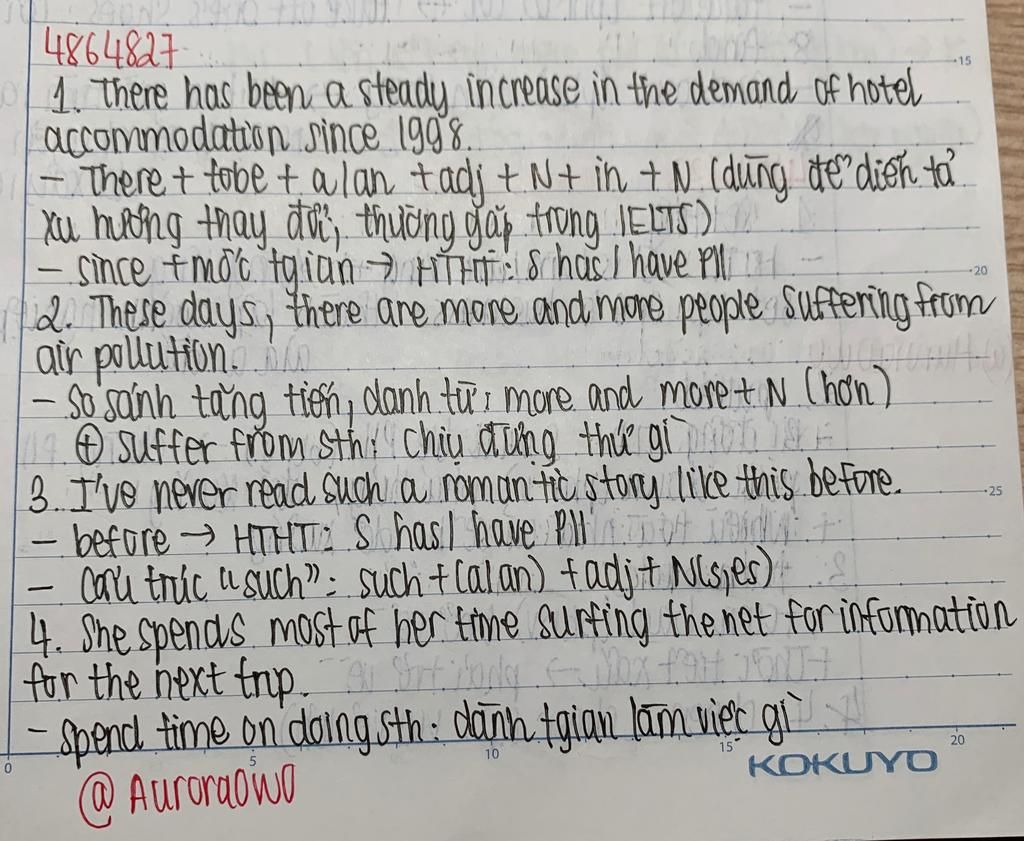 4864827
1. There has been a steady increase in the demand of hotel
accommodation since 1998.
- There + tobe + a/an + adj + N + in + N (dùng để diễn tả
xu hướng thay đổi, thường gặp trong IELTS)
- since + mốc tgian → HTHT: S has/have PII
2. These days, there are more and more people suffering from
air pollution.
- So sánh tăng tiến, danh từ: more and more + N (hơn)
⊕ suffer from sth: chịu đựng thứ gì
3. I've never read such a romantic story like this before.
- before → HTHT: S has/have PII
- Cấu trúc "such": such + (a/an) + adj + N(s,es)
4. She spends most of her time surfing the net for information
for the next trip.
- spend time on doing sth: dành tgian làm việc gì
@AuroraOwO
KOKUYO
0 5 10 15 20
15
20
25